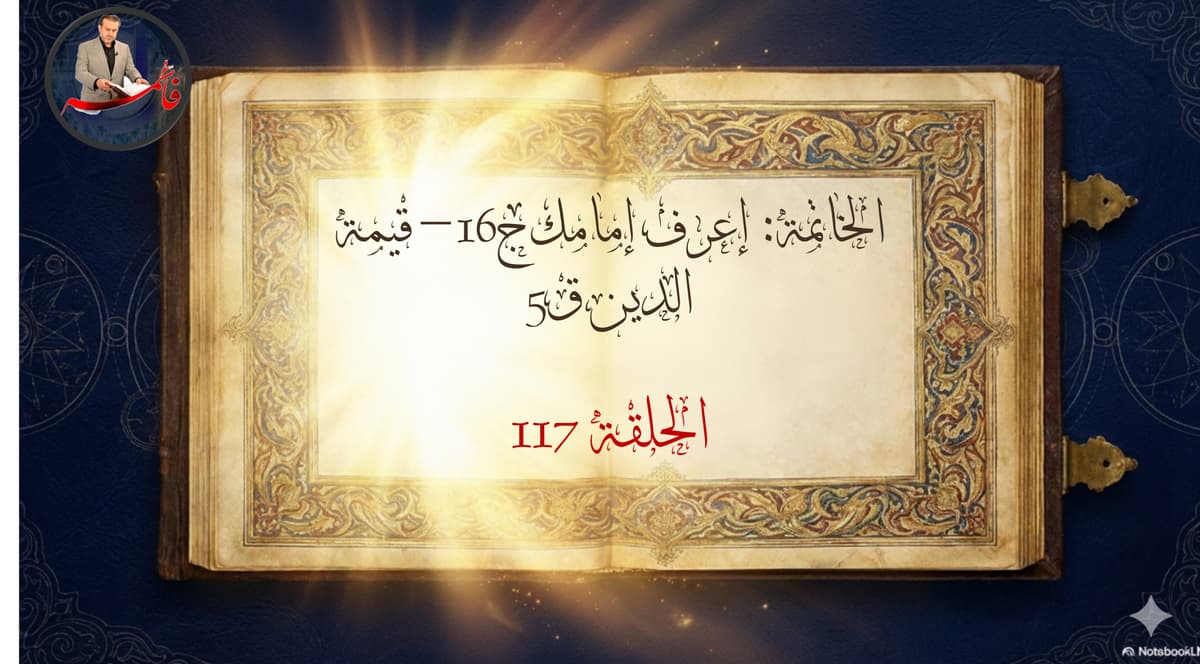 فاطمة
الخاتمة: إعرف إمامك ج16 – قيمة
الدين ق5
الحلقة 117
NotsbookLM